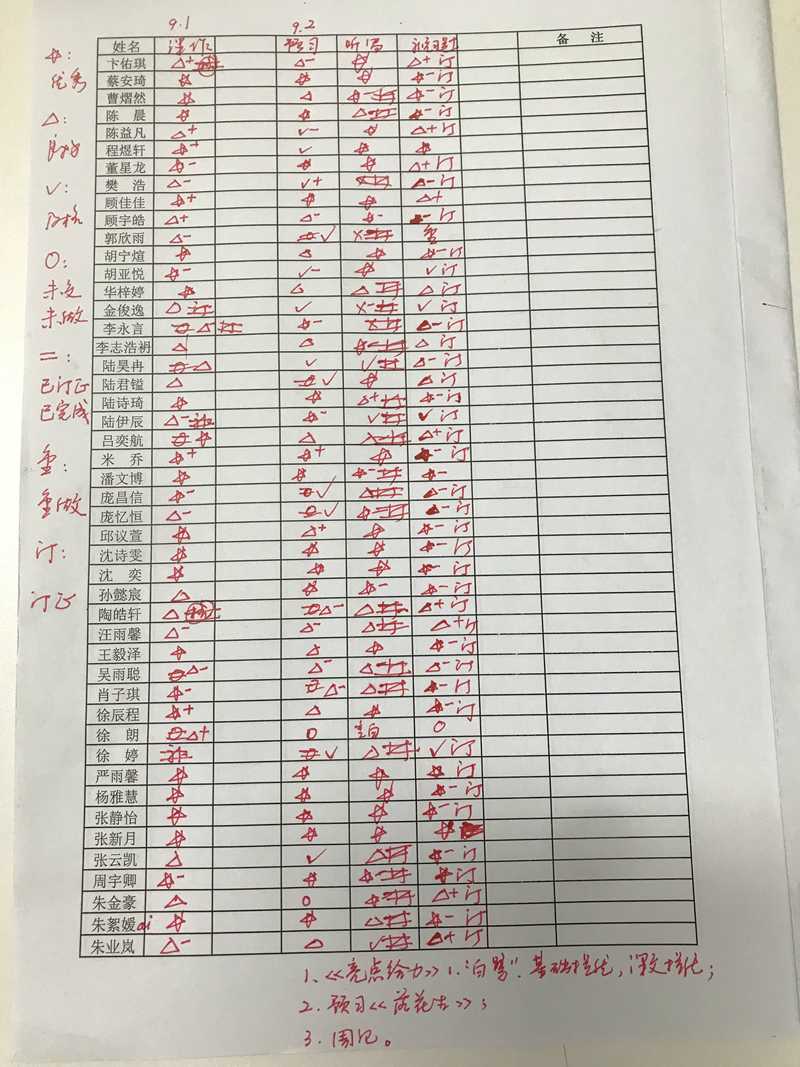 9.1 9.2
姓名 课作 预习 听写 备注
卞佑琪 △+ △- ☆ △+订
蔡安琦 ☆ ☆ ☆ ☆-订
曹熠然 ☆ △ ☆-订 ☆-订
陈晨 ☆ △ △订 ☆-订
陈益凡 △+ √- ☆ △+订
程煜轩 ☆+ √ ☆ ☆
董星龙 ☆- ☆ ☆ △+订
樊浩 △- √+ ×订 △-订
顾佳佳 ☆+ ☆ ☆ △+
顾宇皓 △+ △- ☆- ☆-订
郭欣雨 △- √ ×订 重
胡宁煊 ☆ △ ☆ ☆-订
胡亚悦 ☆- √- ☆ √订
华梓婷 ☆ △ △订 △订
金俊逸 △订 √ ×-订 √订
李永言 O △订 ☆- ×订 △-订
李志浩裐 △ △ ☆-订 △订
陆昊冉 O △ √ √订 △-订
陆君镒 △ O √ ☆ △订
陆诗琦 ☆ ☆ △+订 ☆-订
陆伊辰 △-订 ☆- √订 √订
吕奕航 O ☆ △ ×-订 △+订
米乔 ☆+ ☆+ ☆ ☆-订
潘文博 ☆ ☆ ☆-订 ☆-
庞昌信 ☆- O √ ☆ △-订
庞忆恒 △- O √ ☆-订 △-订
邱议萱 ☆ △+ ☆ ☆-订
沈诗雯 ☆ ☆ ☆ ☆-订
沈奕 ☆ ☆ ☆ ☆-订
孙懿宸 △ ☆ ☆- ☆-订
陶皓轩 △ O △- △订 △+订
汪雨馨 △- △- △订 △+订
王毅泽 ☆ △ ☆ ☆-订
吴雨聪 O △- △- △订 △-订
肖子琪 ☆- O △- △订 ☆-订
徐辰程 ☆+ △ ☆ ☆-订
徐朗 O △+ O 空白 O
徐婷 O √ △订 √订
严雨馨 ☆ ☆ ☆ ☆订
杨雅慧 ☆ ☆ ☆ ☆-订
张静怡 ☆ ☆ ☆ ☆-订
张新月 ☆ ☆ ☆ ☆
张云凯 △ √ △订 ☆-订
周宇卿 ☆- ☆ ☆-订 ☆订
朱金豪 △ O ☆订 △+订
朱絮媛ai ☆ ☆ △订 ☆-订
朱业岚 △- △ √订 △+订
☆:
优秀
△:
良好
√:
及格
O:
未交
未做
=:
已订正
已完成
重:
重做
订:
订正
1、《亮点给力》1、"白鹭"，基础摘优，课文摘优；
2、预习《落花生》；
3、周记。